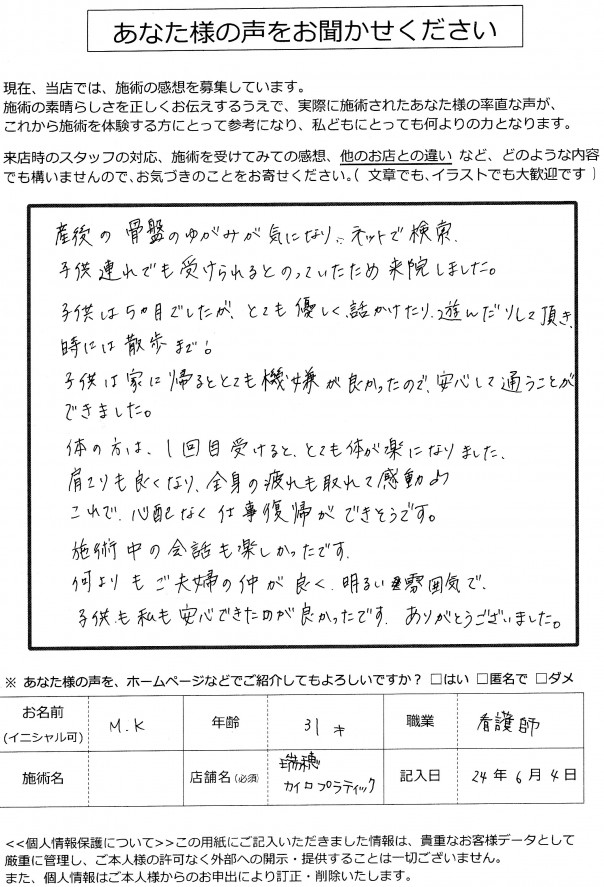 あなた様の声をお聞かせください
現在、当店では、施術の感想を募集しています。
施術の素晴らしさを正しくお伝えするうえで、実際に施術されたあなた様の率直な声が、
これから施術を体験する方にとって参考になり、私どもにとっても何よりの力となります。
来店時のスタッフの対応、施術を受けてみての感想、他のお店との違い など、どのような内容
でも構いませんので、お気づきのことをお寄せください。( 文章でも、イラストでも大歓迎です )
産後の骨盤のゆがみが気になり、ネットで検索、
子供連れでも受けられるとのっていたため来院しました。
子供は5カ月でしたが、とても優しく、話かけたり、遊んだりして頂き、
時には散歩まで!
子供は家に帰るととても機嫌が良かったので、安心して通うことが
できました。
体の方は、1回目受けると、とても体が楽になりました、
肩こりも良くなり、全身の疲れも取れて感動♪
これで、心配なく仕事復帰ができそうです。
施術中の会話も楽しかったです。
何よりもご夫婦の仲が良く、明るい雰囲気で、
子供も私も安心できたのが良かったです。ありがとうございました。
※ あなた様の声を、ホームページなどでご紹介してもよろしいですか? □はい □匿名で □ダメ
お名前 (イニシャル可) M.K 年齢 31才 職業 看護師
施術名 店舗名(必須) 瑞穂カイロプラティック 記入日 24年6月4日
<<個人情報保護について>>この用紙にご記入いただきました情報は、貴重なお客様データとして
厳重に管理し、ご本人様の許可なく外部への開示・提供することは一切ございません。
また、個人情報はご本人様からのお申出により訂正・削除いたします。